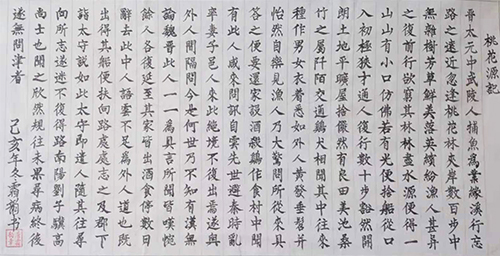 桃花源記
晉太元中武陵人捕魚為業緣溪行忘
路之遠近忽逢桃花林夾岸數百步中
無雜樹芳草鮮美落英繽紛漁人甚異
之復前行欲窮其林林盡水源便得一
山山有小口仿佛若有光便捨船從口
入初極狹才通人復行數十步豁然開
朗土地平曠屋捨儼然有良田美池桑
竹之屬阡陌交通雞犬相聞其中往來
種作男女衣着悉如外人黃髮垂髫并
怡然自樂見漁人乃大驚問所從來具
答之便要還家設酒殺雞作食村中聞
有此人咸來問訊自雲先世避秦時亂
率妻子邑人來此絕境不復出焉遂與
外人間隔問今是何世乃不知有漢無
論魏晉此人一一為具言所聞皆嘆惋
餘人各復延至其家皆出酒食停數日
辭去此中人語雲不足為外人道也既
出得其船便扶向路處處志之及郡下
詣太守說如此太守即遣人隨其往尋
向所志遂迷不復得路南陽劉子驥高
尚士也聞之欣然規往未果尋病終後
遂無問津者 己亥年冬书